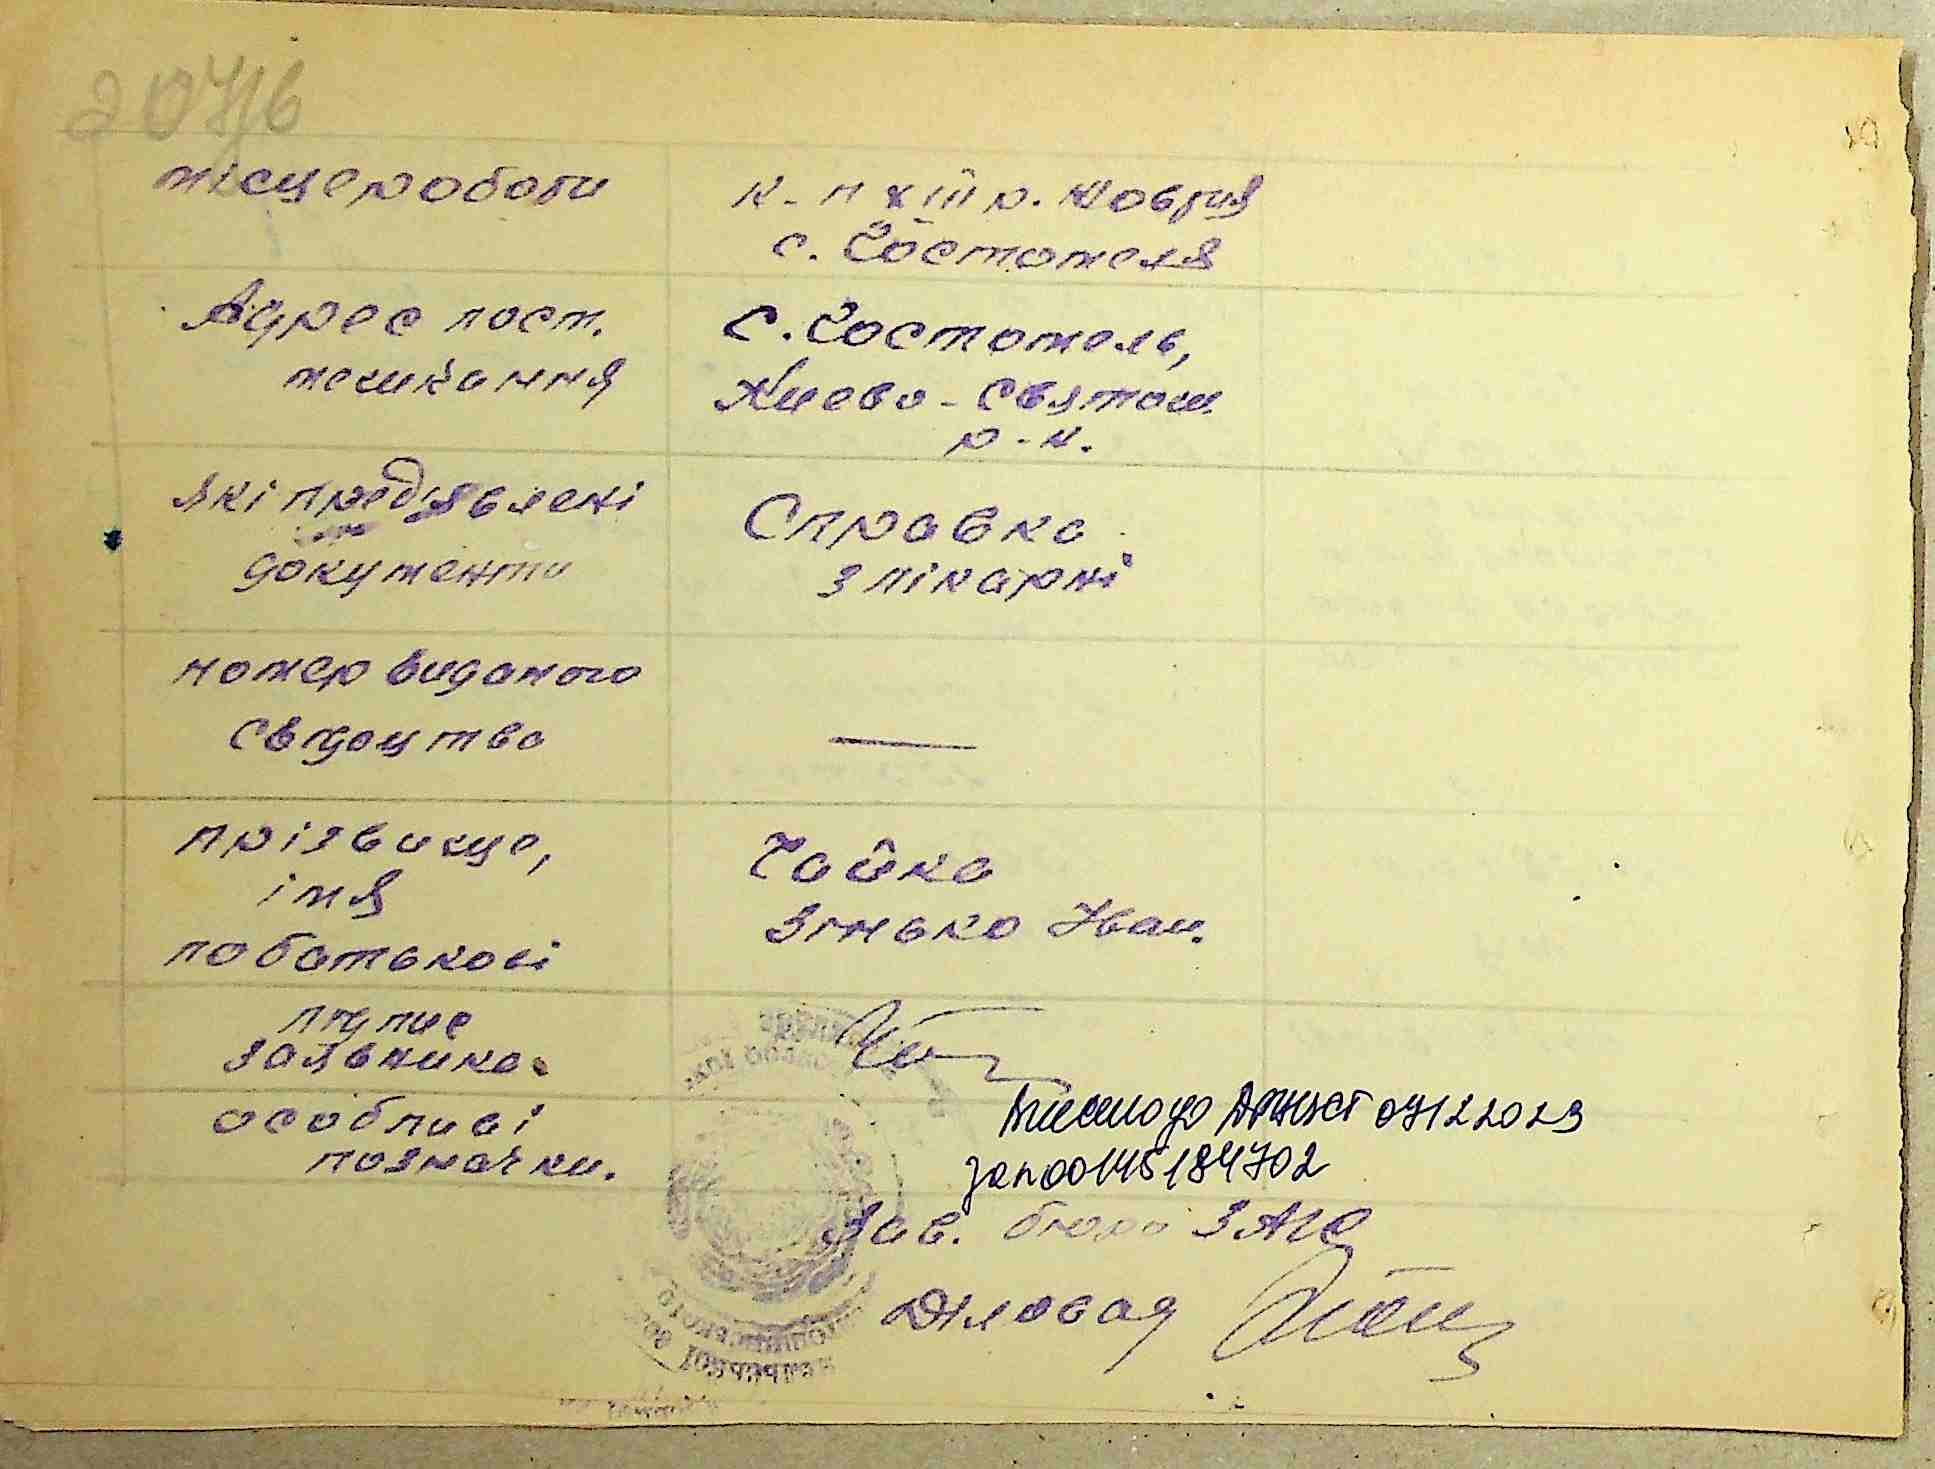 207/в
місце роботи
к-п ХІІІ р. Жовтня
с. Гостомеля
Адрес пост.
мешкання
С. Гостомель,
Києво-Святош.
р-н.
які пред'явлені
документи
Справка
з лікарні
номер виданого
свідоцтва
—
прізвище,
імя
побатькові
Чайка
Зінько Іван.
підпис
заявника
особливі
позначки.
07122023
00145184702
Зав. бюро ЗАГС
Діловая